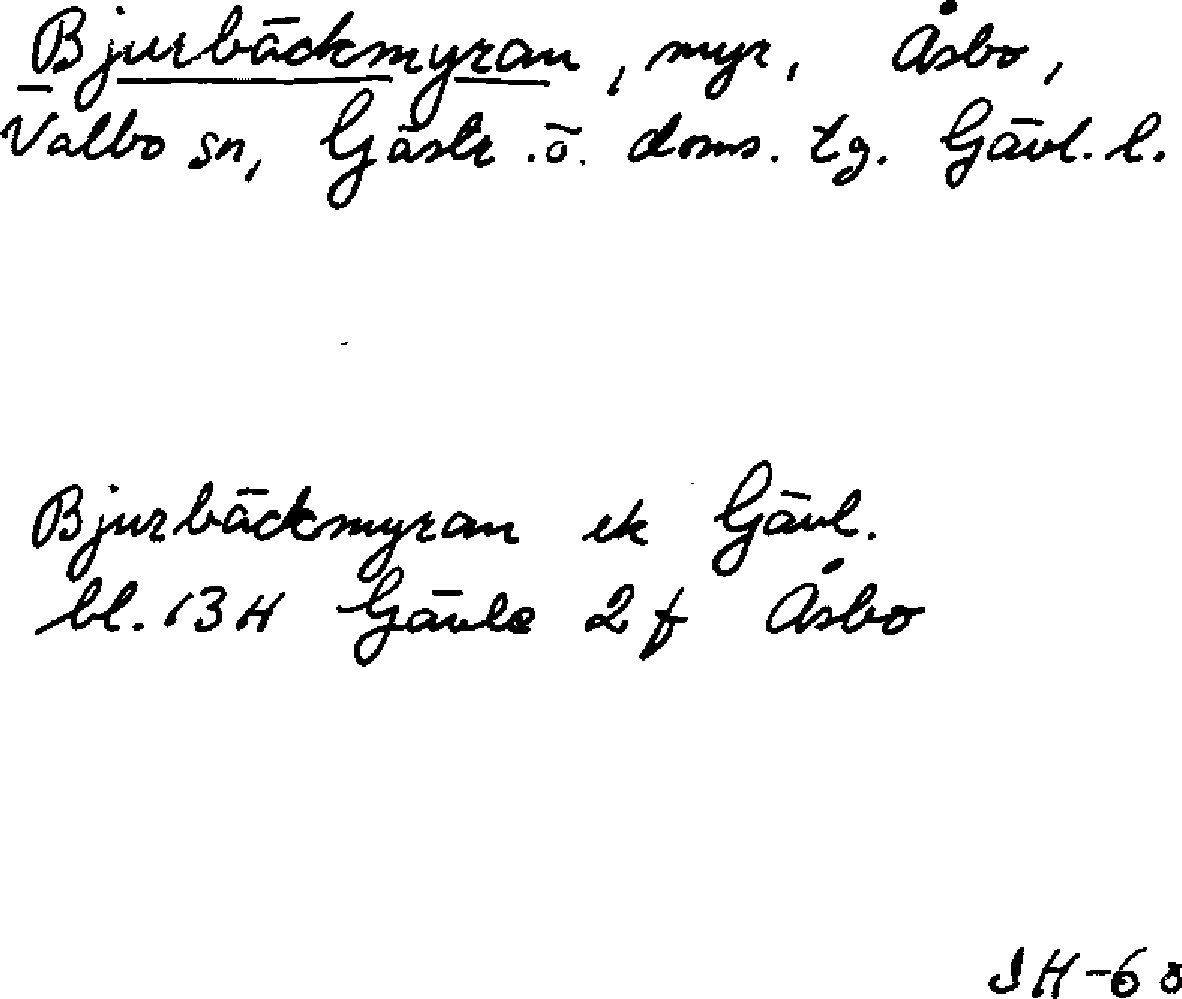 Bjurbäckmyran, myr, Åsbo,
Valbo sn, Gästr. ö. doms. tg. Gävl. l.
Bjurbäckmyran ek Gävl.
bl. 13 H Gävle 2 f Åsbo